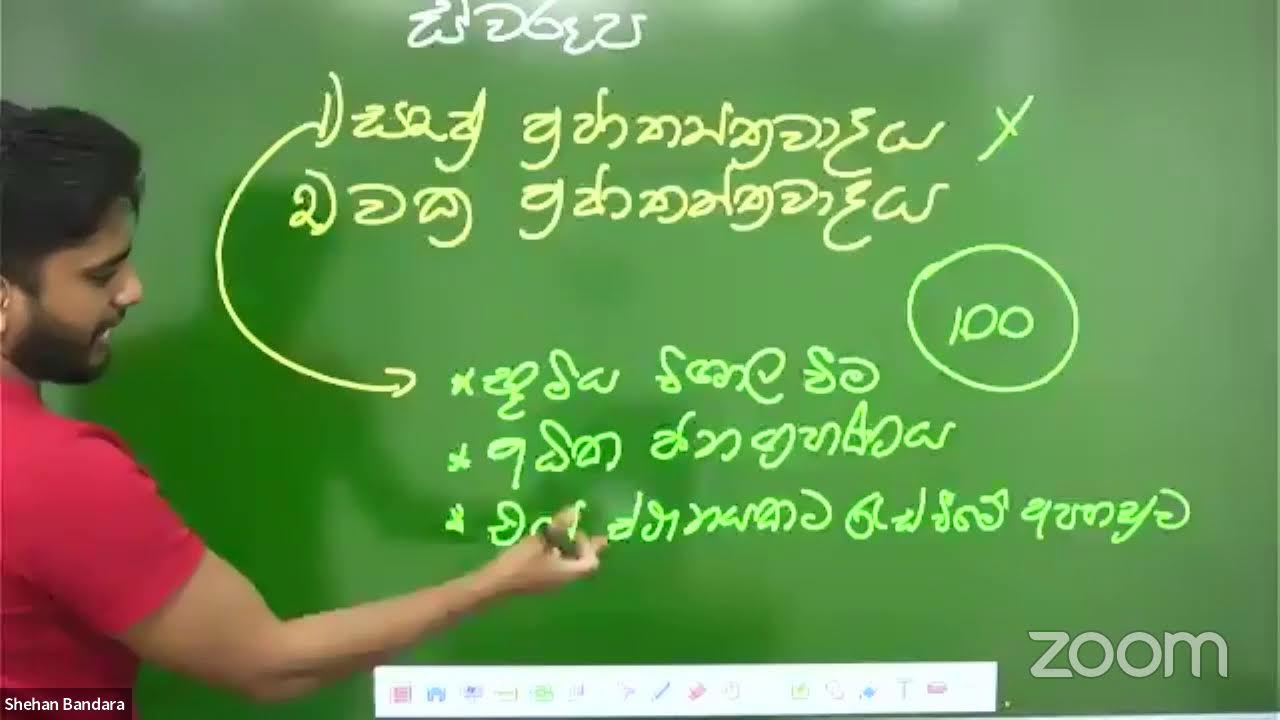 ස්වරූප
1) සෘජු ප්‍රජාතන්ත්‍රවාදය X
2) වක්‍ර ප්‍රජාතන්ත්‍රවාදය
100
* භූමිය විශාල වීම
* අධික ජනග්‍රහණය
* එකම ස්ථානයකට රැස්වීමේ අපහසුව
zoom
Shehan Bandara